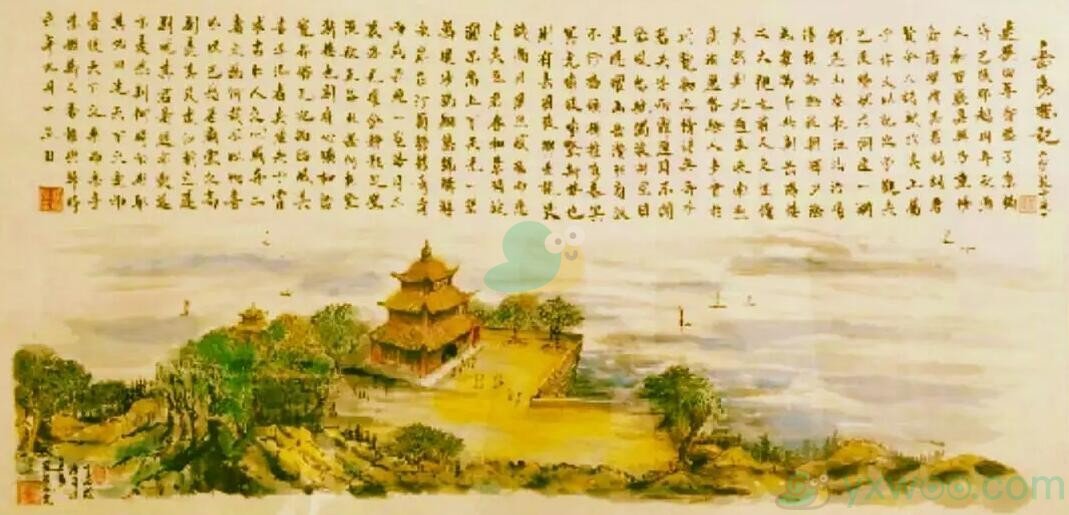 岳陽樓記
慶曆四年春滕子京謫
守巴陵郡越明年政通
人和百廢具興乃重修
岳陽樓增其舊制刻唐
賢今人詩賦於其上屬
予作文以記之予觀夫
巴陵勝狀在洞庭一湖
銜遠山吞長江浩浩湯
湯橫無際涯朝暉夕陰
氣象萬千此則岳陽樓
之大觀也前人之述備
矣然則北通巫峽南極
瀟湘遷客騷人多會於
此覽物之情得無異乎
若夫淫雨霏霏連月不開
陰風怒號濁浪排空日
星隱耀山岳潛形商旅
不行檣傾楫摧薄暮冥
冥虎嘯猿啼登斯樓也
則有去國懷鄉憂讒畏
譏滿目蕭然感極而悲
者矣至若春和景明波
瀾不驚上下天光一碧
萬頃沙鷗翔集錦鱗游
泳岸芷汀蘭郁郁青青
而或長煙一空皓月千
里浮光躍金靜影沉璧
漁歌互答此樂何極登
斯樓也則有心曠神怡
寵辱偕忘把酒臨風其
喜洋洋者矣嗟夫予嘗
求古仁人之心或異二
者之為何哉不以物喜
不以己悲居廟堂之高
則憂其民處江湖之遠
則憂其君是進亦憂退
亦憂然則何時而樂耶
其必曰先天下之憂而
憂後天下之樂而樂乎
噫微斯人吾誰與歸時
六年九月十五日
yxwoo.com